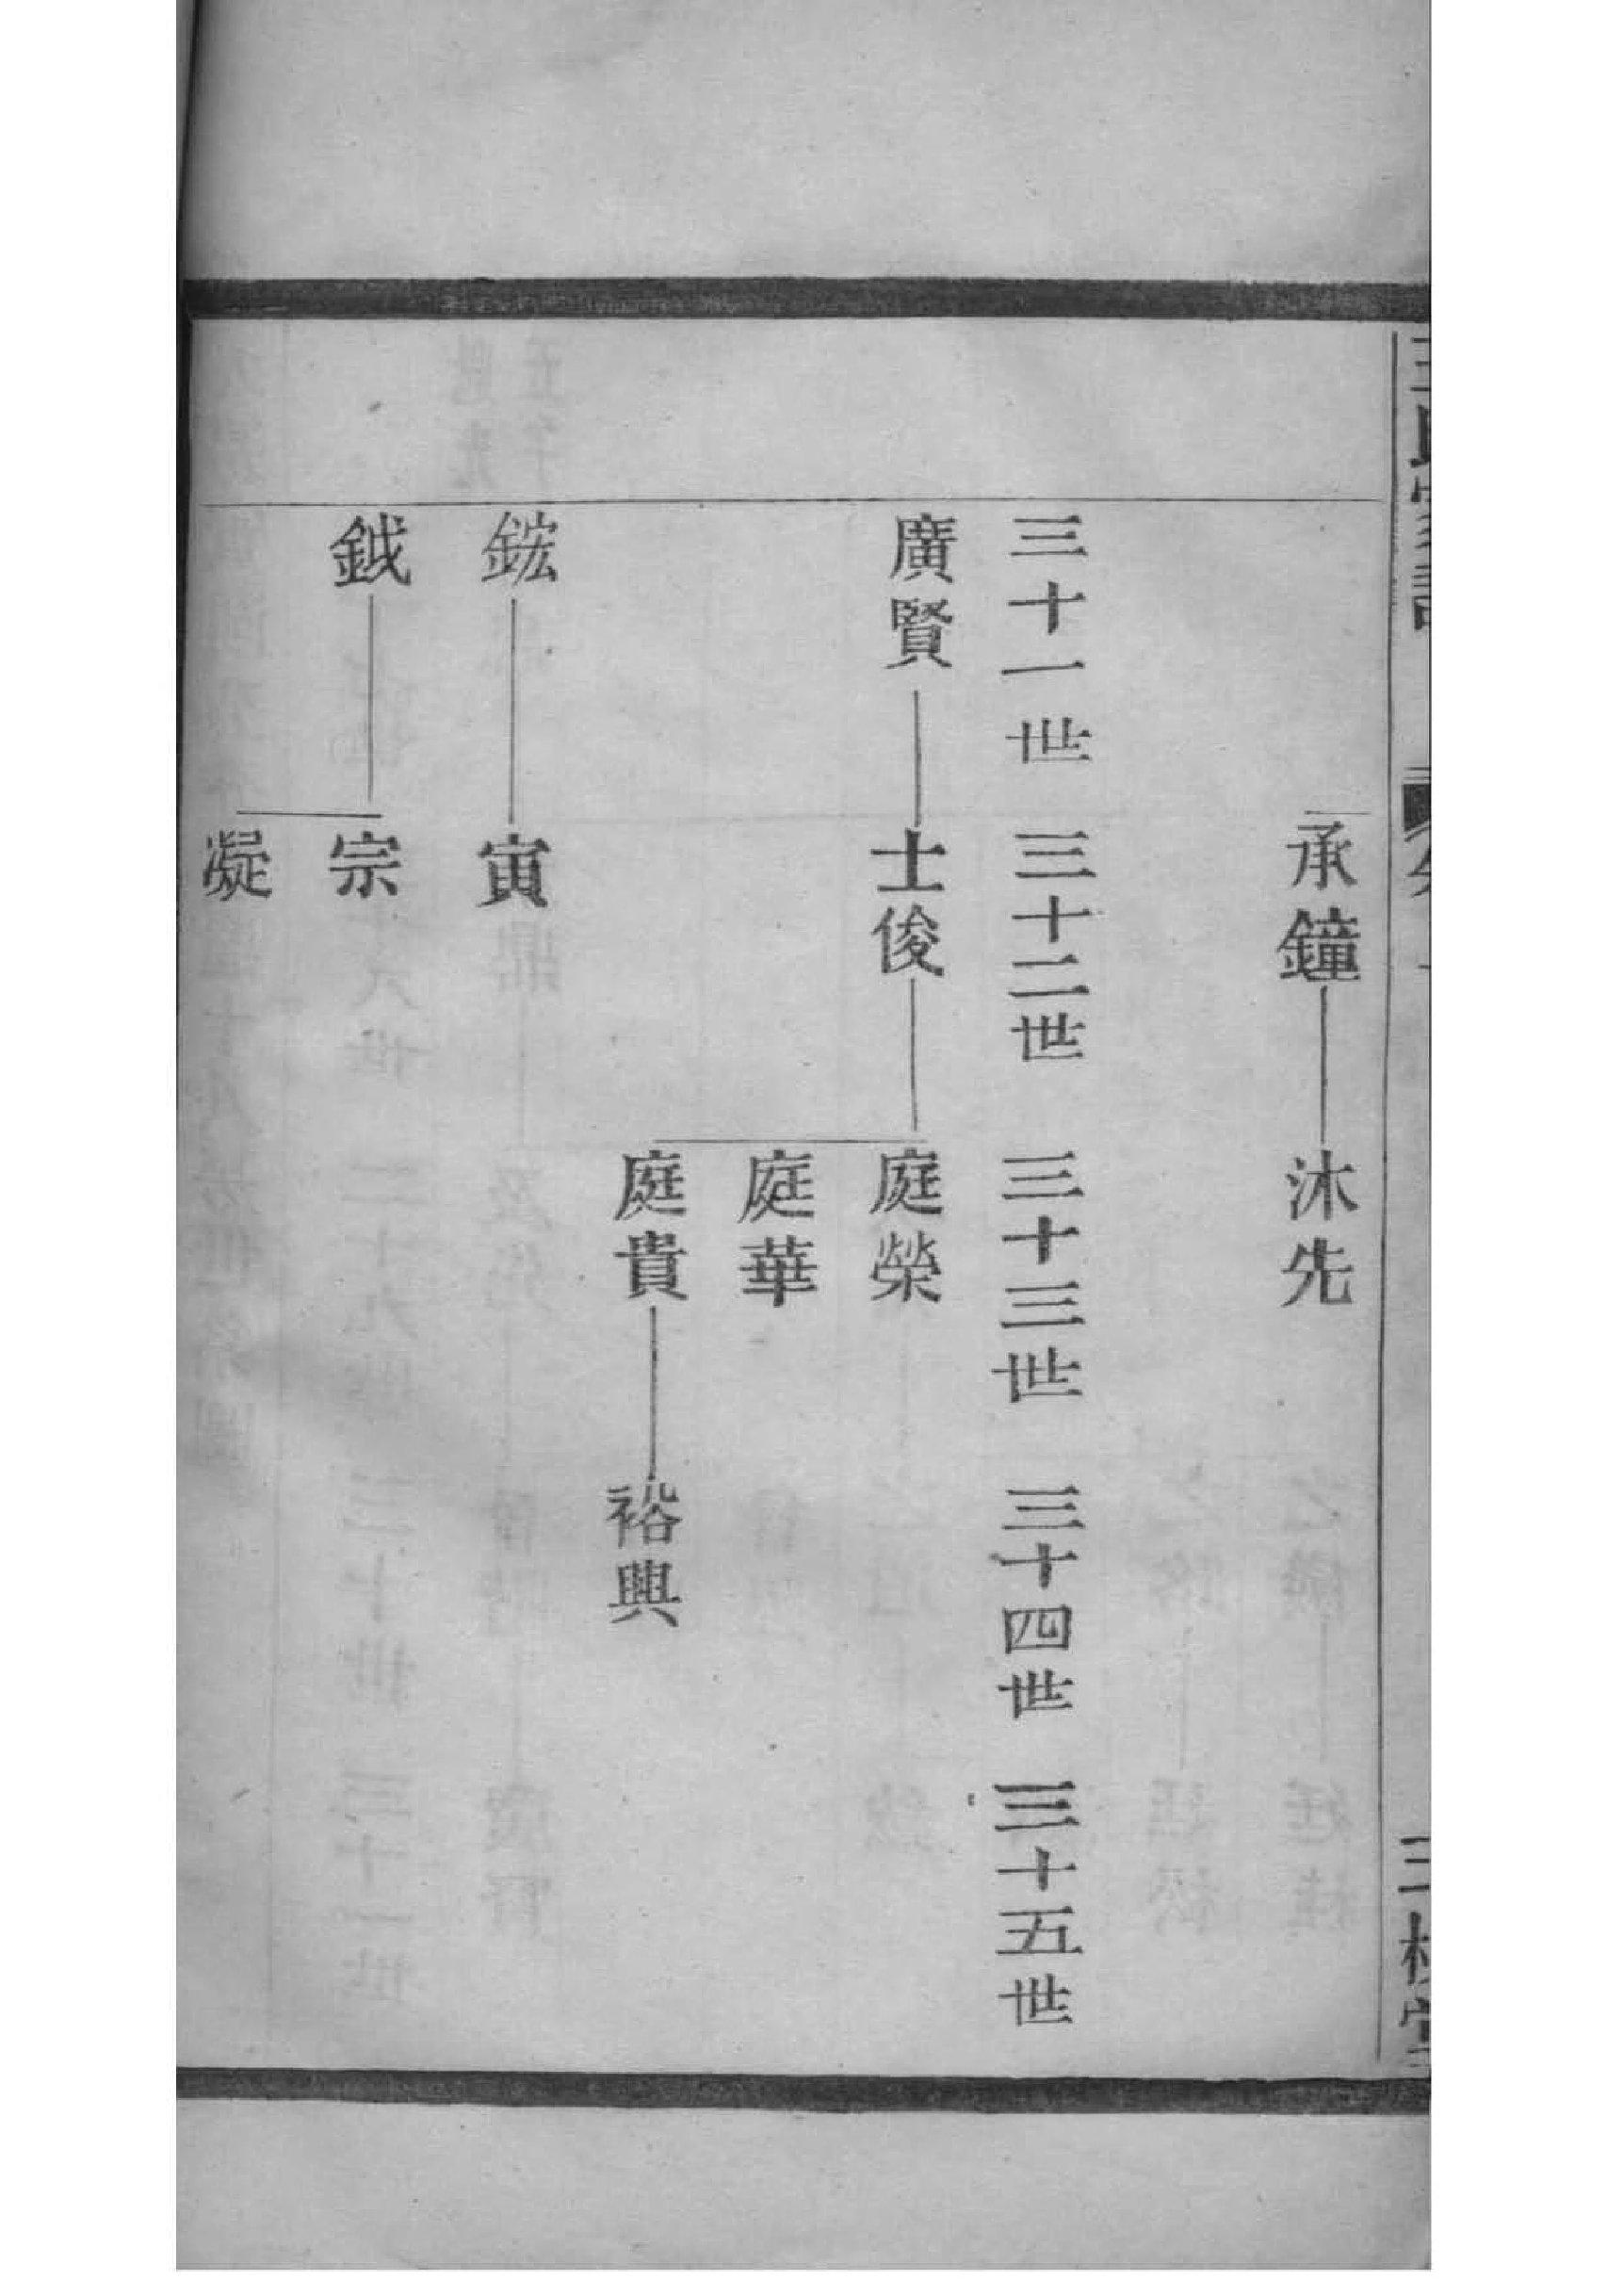 承鐘 沐先
三十一世 三十二世 三十三世 三十四世 三十五世
廣賢 士俊 庭榮
庭華
庭貴 裕興
鋐 寅
鉞 宗
凝